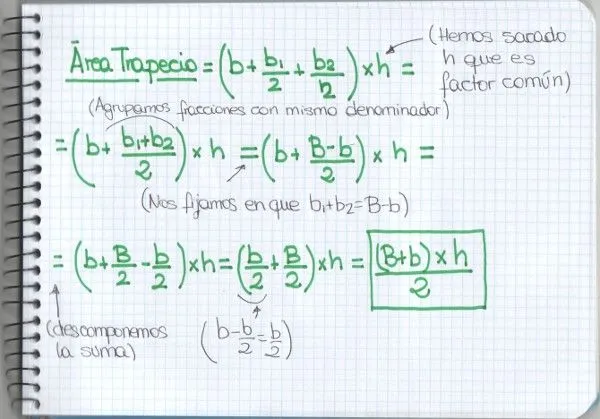 Área Trapecio = (b + b₁/2 + b₂/2) × h =
(Hemos sacado
h que es
factor común)
(Agrupamos fracciones con mismo denominador)
= (b + (b₁+b₂)/2) × h = (b + (B-b)/2) × h =
(Nos fijamos en que b₁+b₂=B-b)
= (b + B/2 - b/2) × h = (b/2 + B/2) × h = ((B+b) × h)/2
(descomponemos
la suma)
(b - b/2 = b/2)